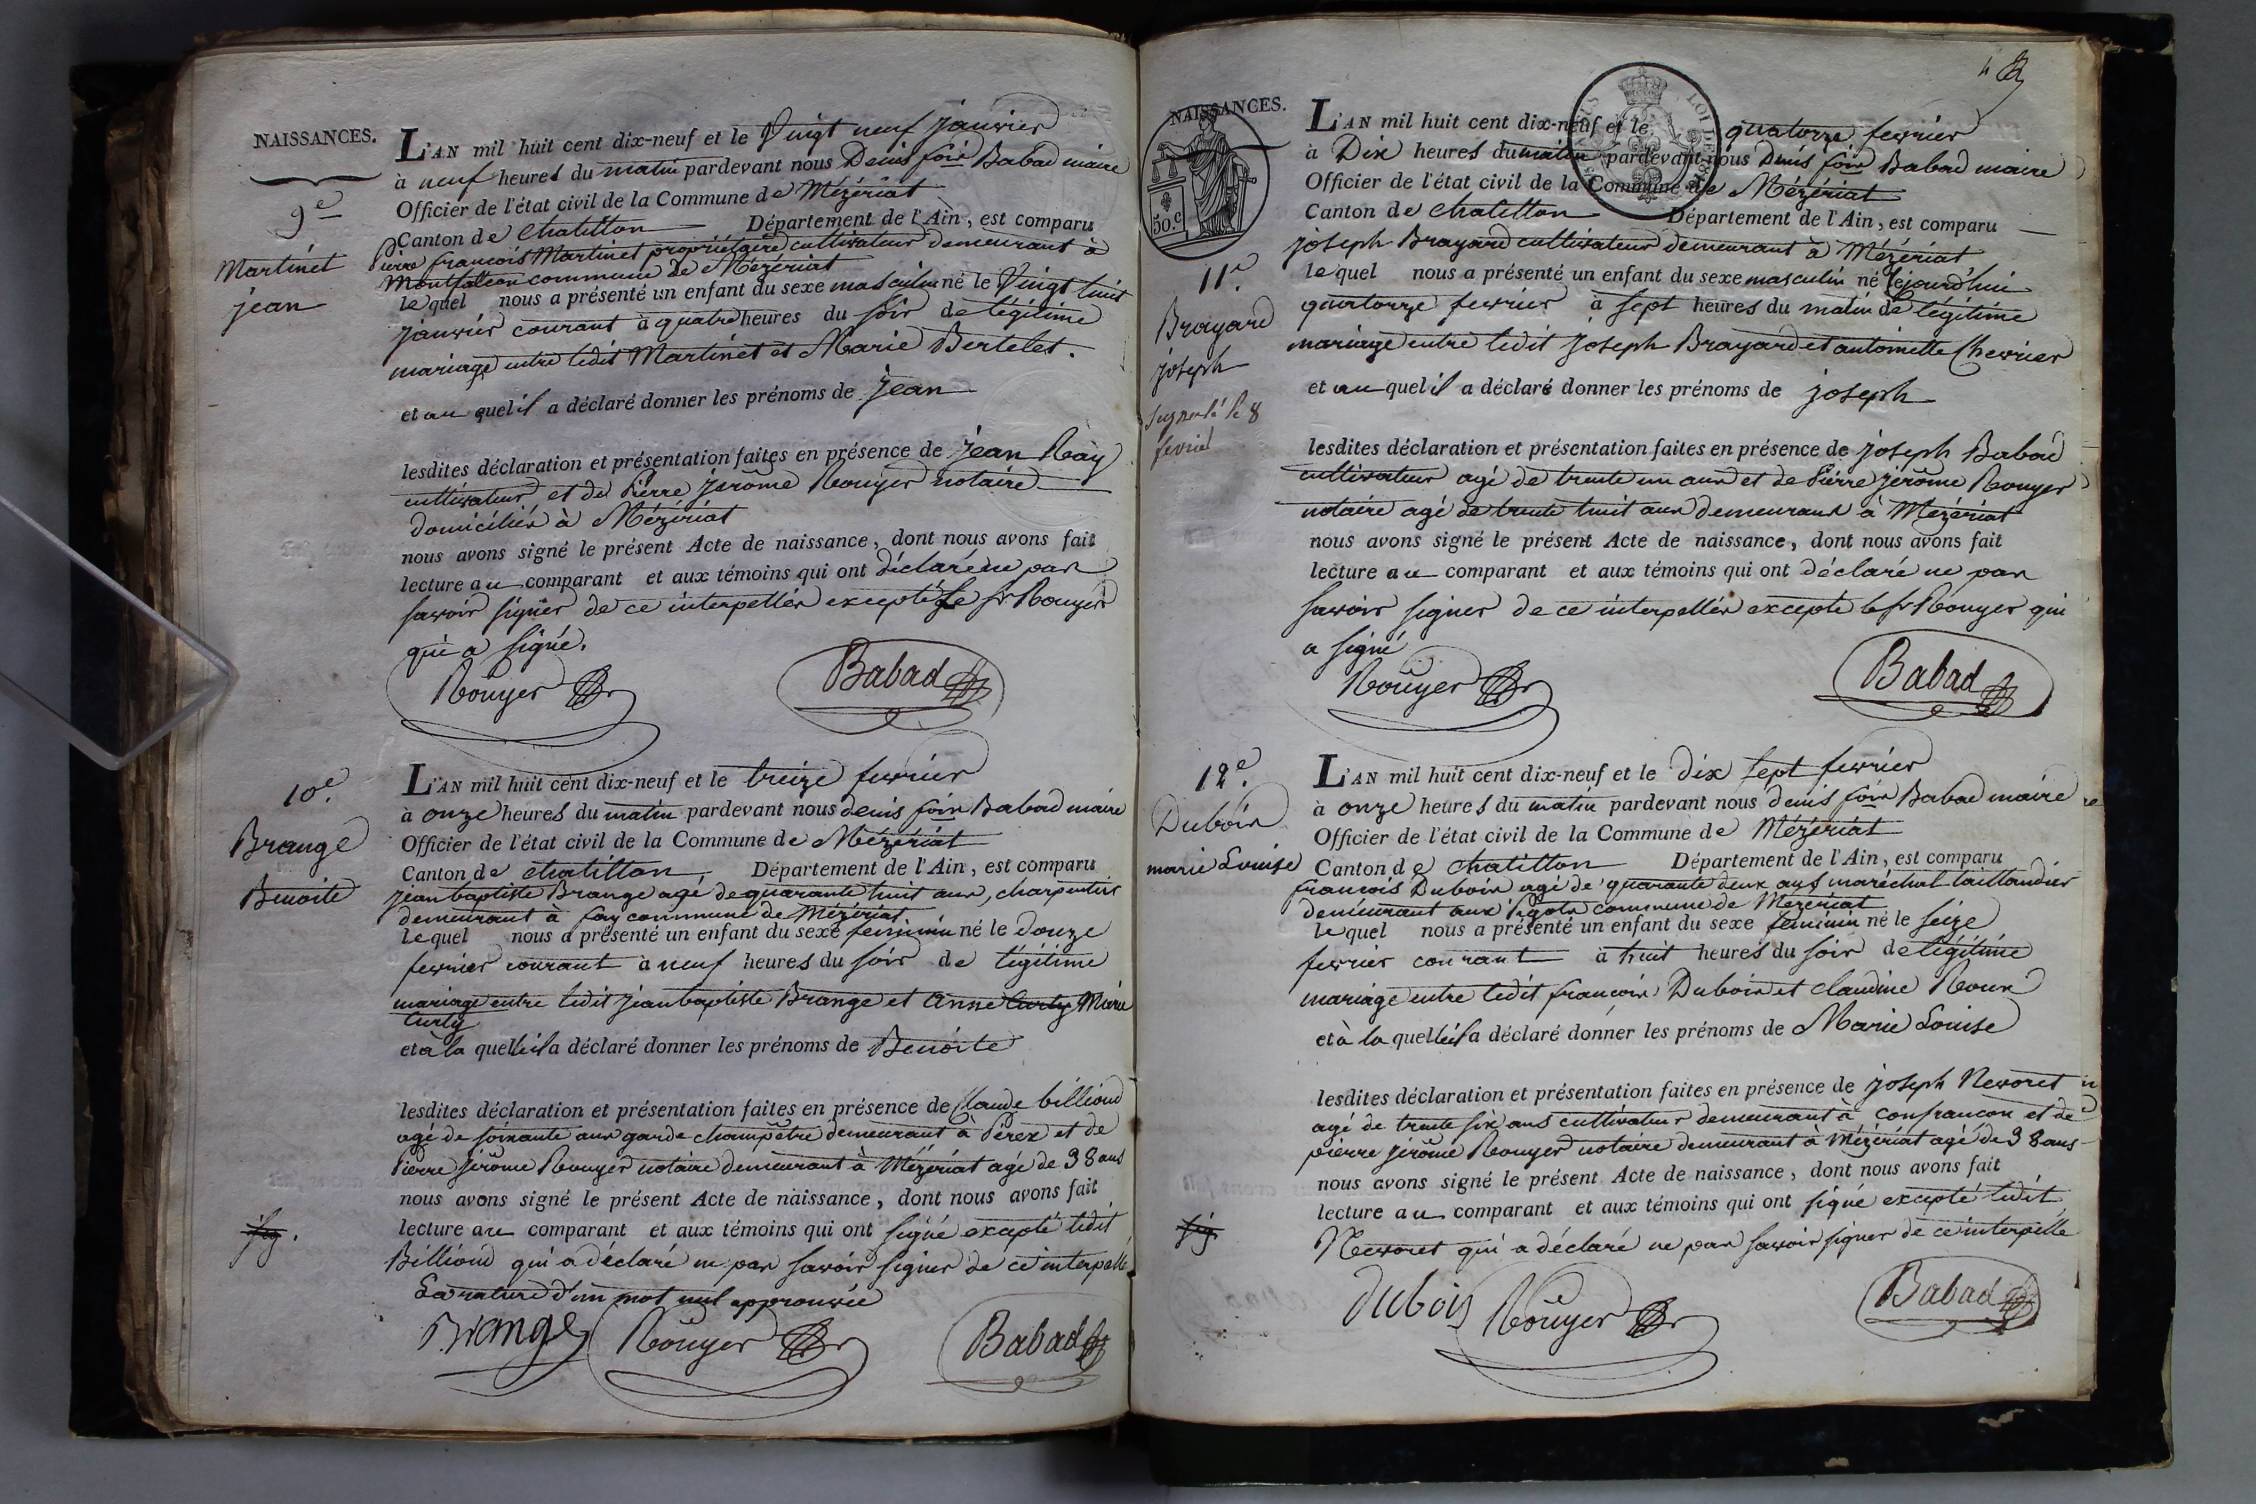 NAISSANCES.
9e
Martinet
jean
L'AN mil huit cent dix-neuf et le Vingt neuf janvier
à neuf heures du matin pardevant nous Denis foix Babad maire
Officier de l'état civil de la Commune de Mézériat
Canton de chatillon Département de l'Ain, est comparu
Pierre françois Martinet propriétaire cultivateur demeurant à
Montfalcon commune de Mézériat
lequel nous a présenté un enfant du sexe masculin né le Vingt huit
janvier courant à quatre heures du soir de légitime
mariage entre ledit Martinet et Marie Bertelet.
et au quel il a déclaré donner les prénoms de jean
lesdites déclaration et présentation faites en présence de jean Ray
cultivateur et de Pierre jérôme Rouyer notaire
domiciliés à Mézériat
nous avons signé le présent Acte de naissance, dont nous avons fait
lecture au comparant et aux témoins qui ont déclaré ne pas
savoir signer de ce interpellés excepté le sr Rouyer
qui a signé.
Rouyer Babad
10e.
Brange
Benoite
L'AN mil huit cent dix-neuf et le treize fevrier
à onze heures du matin pardevant nous denis foix Babad maire
Officier de l'état civil de la Commune de Mézériat
Canton de chatillon, Département de l'Ain, est comparu
jean baptiste Brange agé de quarante huit ans, charpentier
demeurant à fay commune de Mézériat.
lequel nous a présenté un enfant du sexe feminin né le douze
fevrier courant à neuf heures du soir de légitime
mariage entre ledit jean baptiste Brange et Anne Curty Marie
Curty
et à la quelle il a déclaré donner les prénoms de Benoite
lesdites déclaration et présentation faites en présence de Claude billioud
agé de soixante ans garde champêtre demeurant à Pérex et de
Pierre jérôme Rouyer notaire demeurant à Mézériat agé de 38 ans
nous avons signé le présent Acte de naissance, dont nous avons fait
lecture au comparant et aux témoins qui ont signé excepté ledit
Billioud qui a déclaré ne pas savoir signer de ce interpellé
La rature d'un mot nul approuvée
Brange Rouyer Babad
NAISSANCES.
50.c
11e.
Brayard
joseph
L'AN mil huit cent dix-neuf et le quatorze fevrier
à Dix heures du matin pardevant nous Denis foix Babad maire
Officier de l'état civil de la Commune de Mézériat
Canton de chatillon Département de l'Ain, est comparu
joseph Brayard cultivateur demeurant à Mézériat
lequel nous a présenté un enfant du sexe masculin né lejourd'hui
quatorze fevrier à sept heures du matin de légitime
mariage entre ledit joseph Brayard et antoinette Chevrier
et au quel il a déclaré donner les prénoms de joseph
lesdites déclaration et présentation faites en présence de joseph Babad
cultivateur agé de trente un ans et de Pierre jérôme Rouyer
notaire agé de trente huit ans demeurant à Mézériat
nous avons signé le présent Acte de naissance, dont nous avons fait
lecture au comparant et aux témoins qui ont déclaré ne pas
savoir signer de ce interpellés excepté le sr Rouyer qui
a signé
Rouyer Babad
12e.
Dubois
marie Louise
L'AN mil huit cent dix-neuf et le dix sept fevrier
à onze heures du matin pardevant nous denis foix Babad maire
Officier de l'état civil de la Commune de Mézériat
Canton de chatillon Département de l'Ain, est comparu
françois Dubois agé de quarante deux ans maréchal taillandier
demeurant aux commune de Mézériat
lequel nous a présenté un enfant du sexe feminin né le seize
fevrier courant à huit heures du soir de légitime
mariage entre ledit françois Dubois et claudine Roux
et à la quelle il a déclaré donner les prénoms de Marie Louise
lesdites déclaration et présentation faites en présence de joseph Nevoret
agé de trente six ans cultivateur demeurant à confrançon et de
pierre jérôme Rouyer notaire demeurant à Mézériat agé de 38 ans
nous avons signé le présent Acte de naissance, dont nous avons fait
lecture au comparant et aux témoins qui ont signé excepté ledit
Nevoret qui a déclaré ne pas savoir signer de ce interpellé
dubois Rouyer Babad